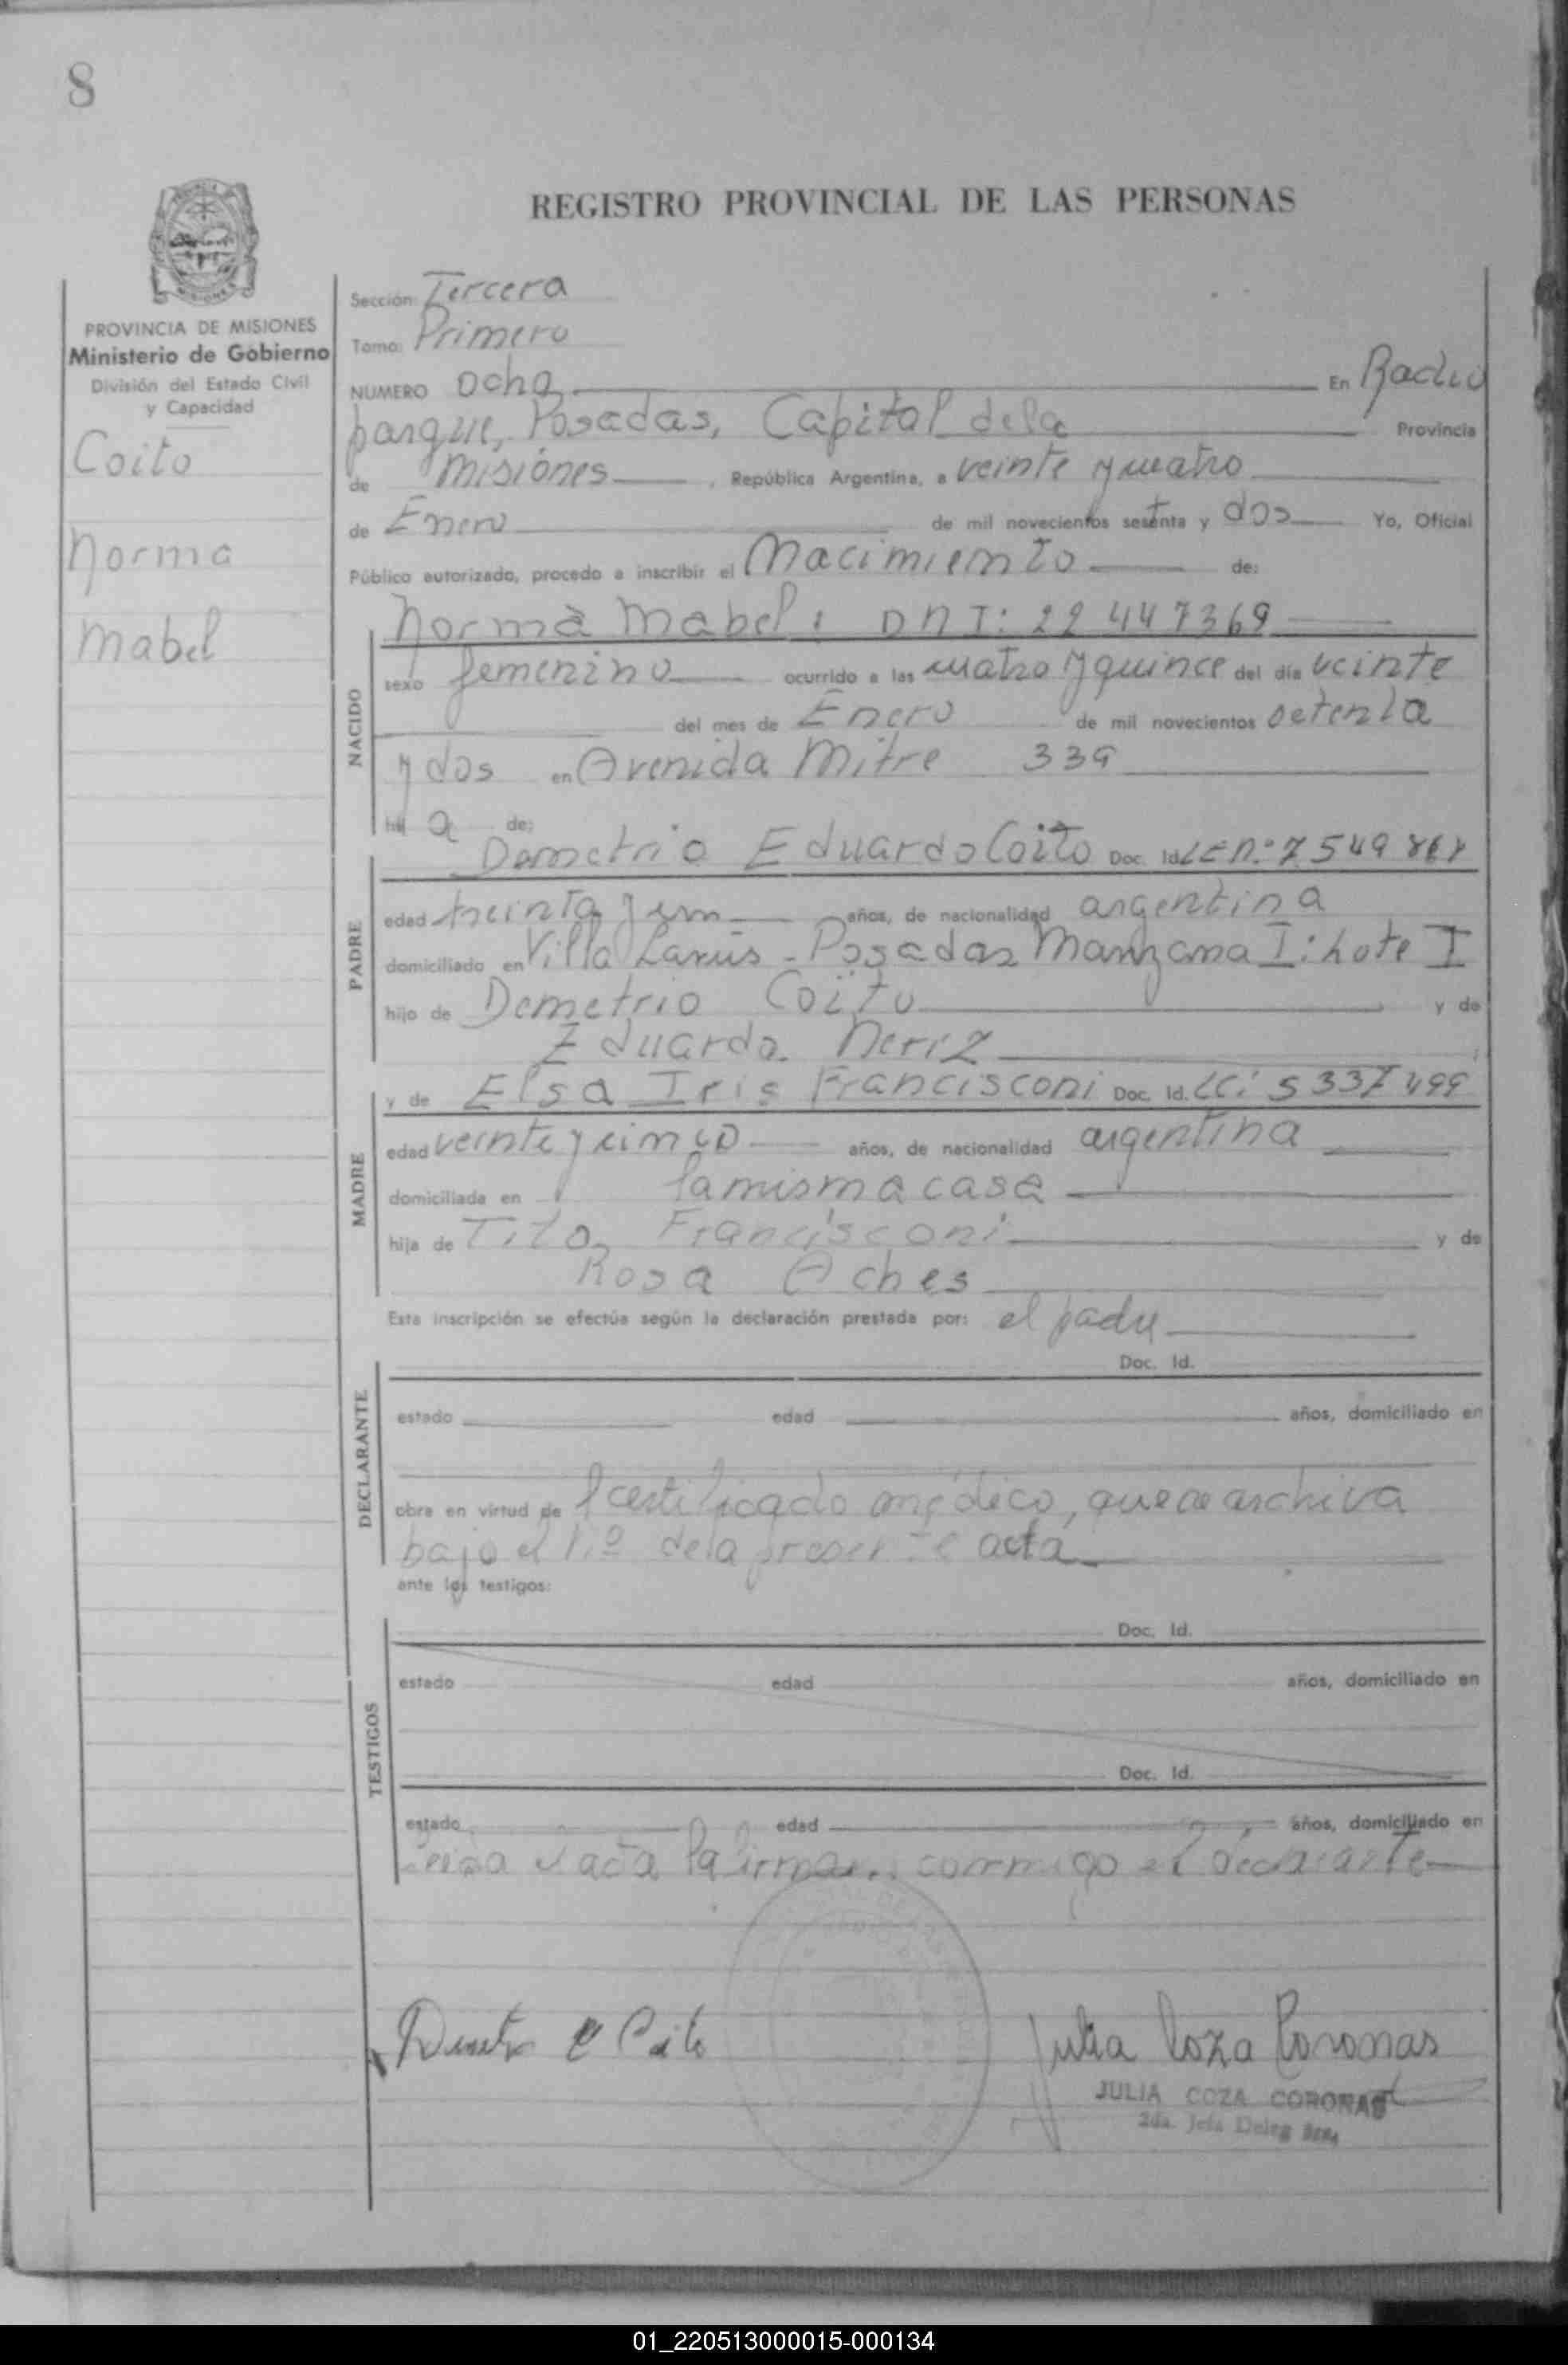 8
REGISTRO PROVINCIAL DE LAS PERSONAS
PROVINCIA DE MISIONES
Ministerio de Gobierno
División del Estado Civil
y Capacidad
Coito
Norma
Mabel
Sección: Tercera
Tomo: Primero
NUMERO ocho En Radio
parque, Posadas, Capital de la Provincia
de Misiones, República Argentina, a veinte y cuatro
de Enero de mil novecientos setenta y dos Yo, Oficial
Público autorizado, procedo a inscribir el Nacimiento de:
NACIDO
Norma Mabel: DNI: 22 447369
sexo femenino ocurrido a las cuatro y quince del día veinte
del mes de Enero de mil novecientos setenta
y dos en Avenida Mitre 339
hij a de:
PADRE
Demetrio Eduardo Coito Doc. Id. LE n.º 7 549
edad treinta y un años, de nacionalidad argentina
domiciliado en Villa Lanús - Posadas Manzana I: Lote I
hijo de Demetrio Coito y de
Eduarda Neriz
MADRE
y de Elsa Iris Francisconi Doc. Id. LC: 5 337 499
edad veinte y cinco años, de nacionalidad argentina
domiciliada en la misma casa
hija de Tito Francisconi y de
Rosa Aches
Esta inscripción se efectúa según la declaración prestada por: el padre
DECLARANTE
Doc. Id.
estado edad años, domiciliado en
obra en virtud de certificado médico, que se archiva
bajo el n.º de la presente acta
ante los testigos:
TESTIGOS
Doc. Id.
estado edad años, domiciliado en
Doc. Id.
estado edad años, domiciliado en
acta la firma conmigo el declarante
Julia Coza Coronas
JULIA COZA CORONAS
2da. Jefa Deleg
01_220513000015-000134